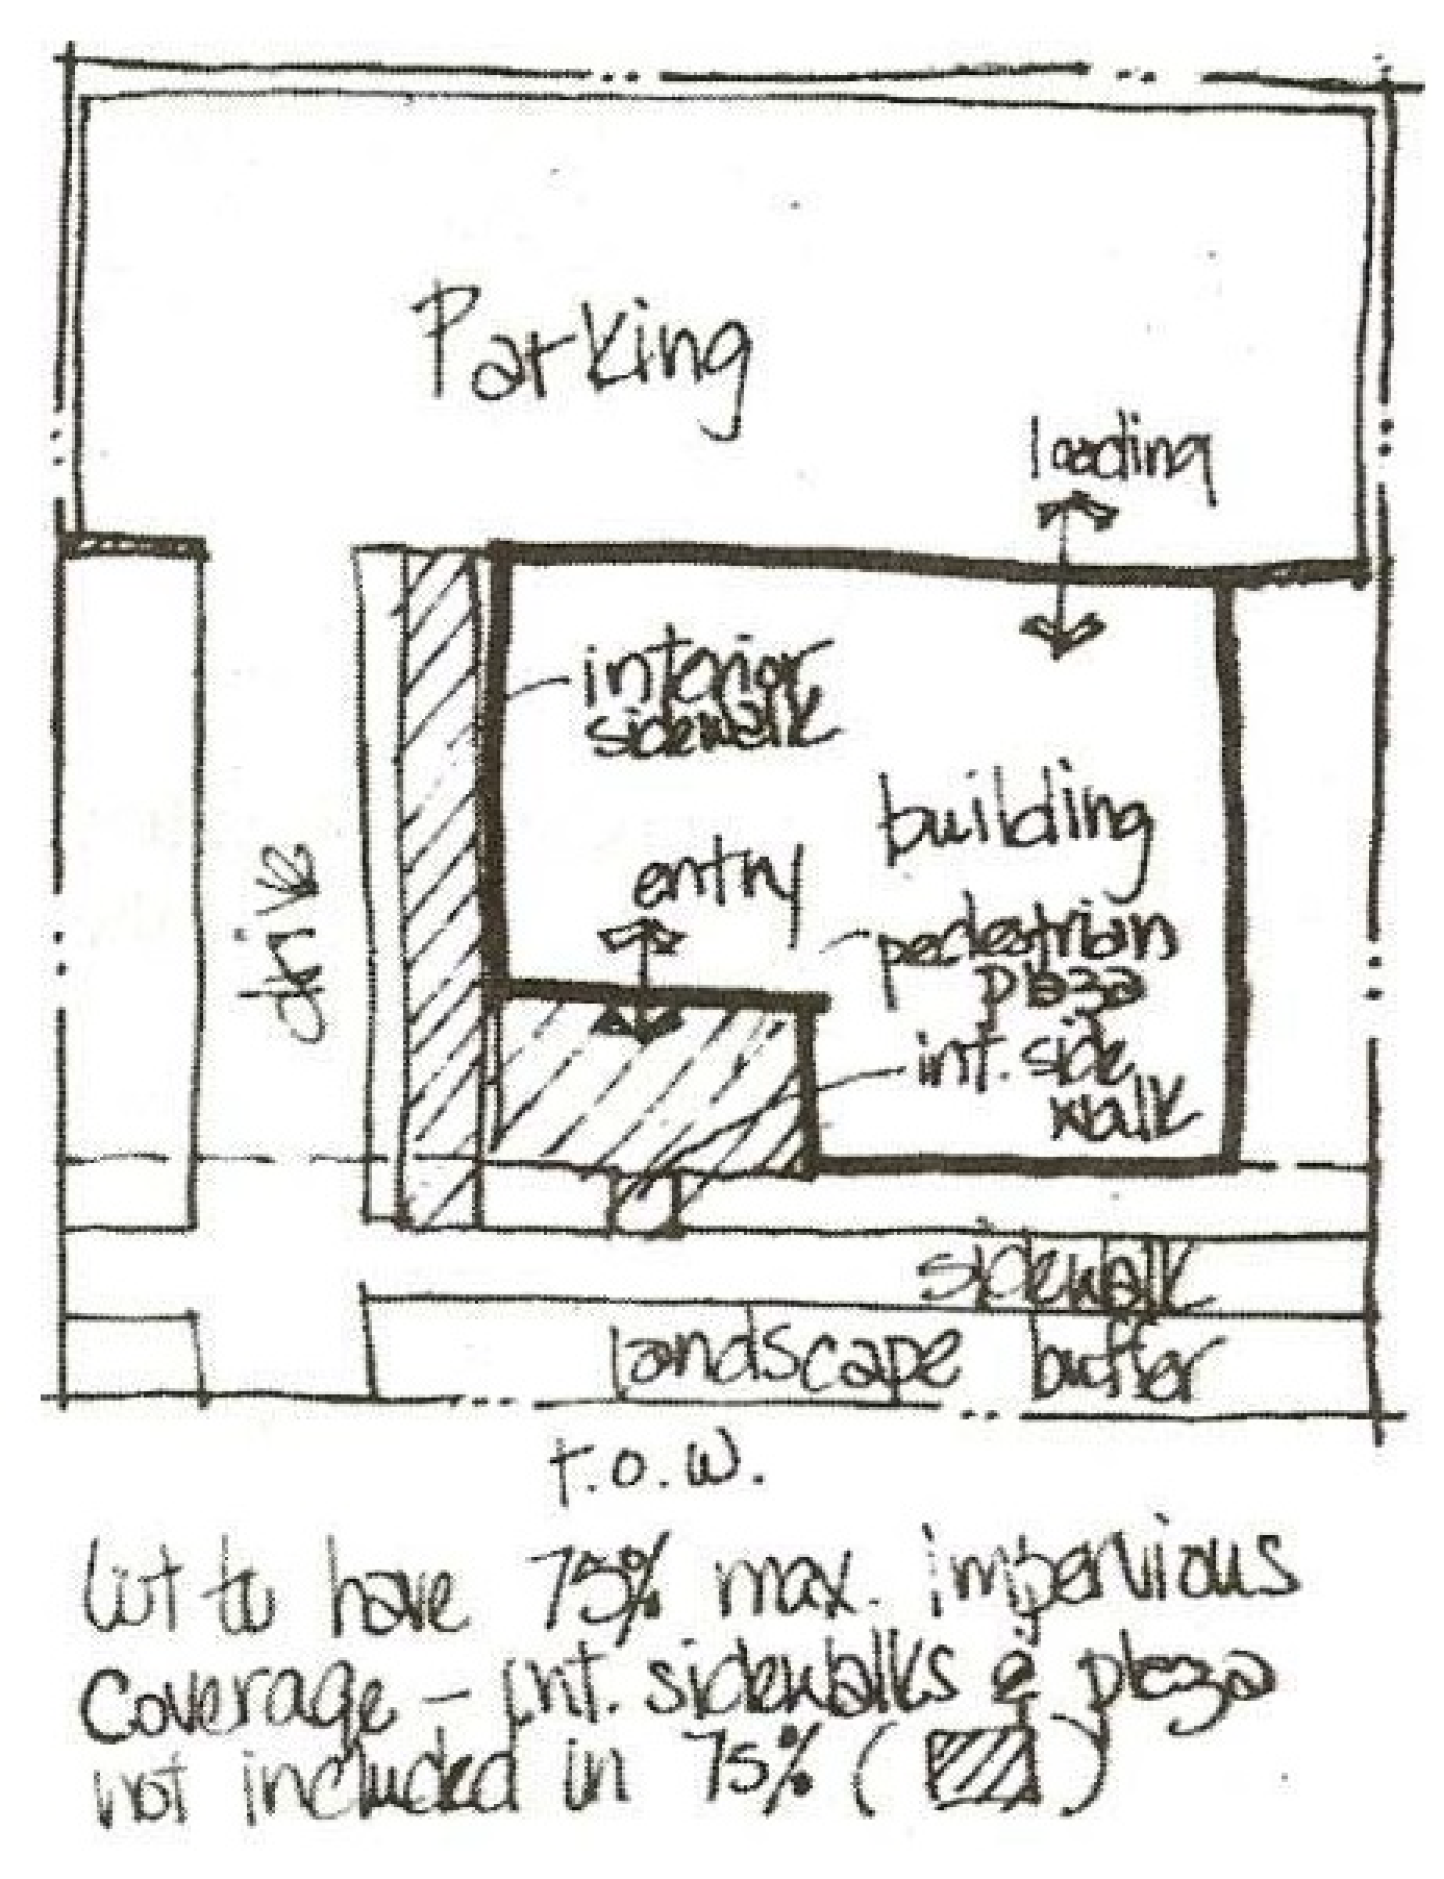 Parking
loading
interior
sidewalk
building
entry
pedestrian
plaza
int. side
walk
drive
sidewalk
landscape buffer
r.o.w.
Lot to have 75% max. impervious
Coverage - Int. sidewalks & plaza
not included in 75% ( )